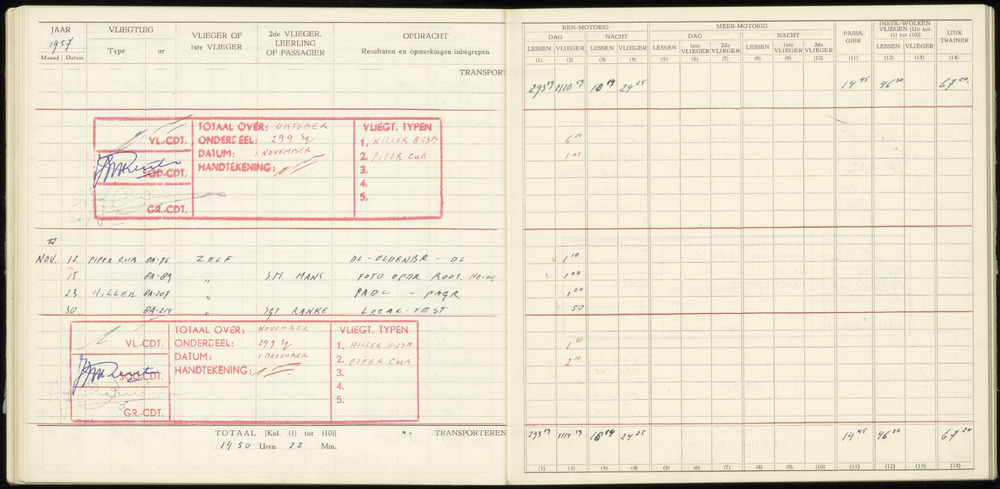 JAAR VLIEGTUIG VLIEGER OF 1ste VLIEGER 2de VLIEGER, LEERLING OF PASSAGIER OPDRACHT
1957 Type nr Resultaten en opmerkingen inbegrepen
Maand Datum
TRANSPORT
VL.-CDT. TOTAAL OVER: OKTOBER VLIEGT. TYPEN
ONDERDEEL: 299 Sq 1. HILLER H-23B
SQD.-CDT. DATUM: 1 NOVEMBER 2. PIPER CUB
HANDTEKENING: 3.
4.
GR.-CDT. 5.
NOV. 12 PIPER CUB 8A-76 ZELF DL - OLDENBR - DL
15 8A-89 " S.M. MANS FOTO OPDR.
23 HILLER 8A-207 " PADL - PAGR
30 8A-214 " SGT RANKE LOCAL TEST
VL.-CDT. TOTAAL OVER: NOVEMBER VLIEGT. TYPEN
ONDERDEEL: 299 Sq 1. HILLER H-23B
SQD.-CDT. DATUM: 1 DECEMBER 2. PIPER CUB
HANDTEKENING: 3.
4.
GR.-CDT. 5.
TOTAAL [Kol. (1) tot (10)] TRANSPORTEREN
1450 Uren 22 Min.
EEN-MOTORIG MEER-MOTORIG PASSA-GIER INSTR./WOLKEN VLIEGEN [Uit kol. (1) tot (10)] LINK TRAINER
DAG NACHT DAG NACHT
LESSEN VLIEGER LESSEN VLIEGER LESSEN 1ste VLIEGER 2de VLIEGER LESSEN 1ste VLIEGER 2de VLIEGER LESSEN VLIEGER
(1) (2) (3) (4) (5) (6) (7) (8) (9) (10) (11) (12) (13) (14)
293 59 1110 59 10 24 25 14 45 46 20 67 20
6 20
1 05
1 10
1 00
1 00
50
1 50
2 10
293 59 24 25 14 45 46 20 67 20
(1) (2) (3) (4) (5) (6) (7) (8) (9) (10) (11) (12) (13) (14)